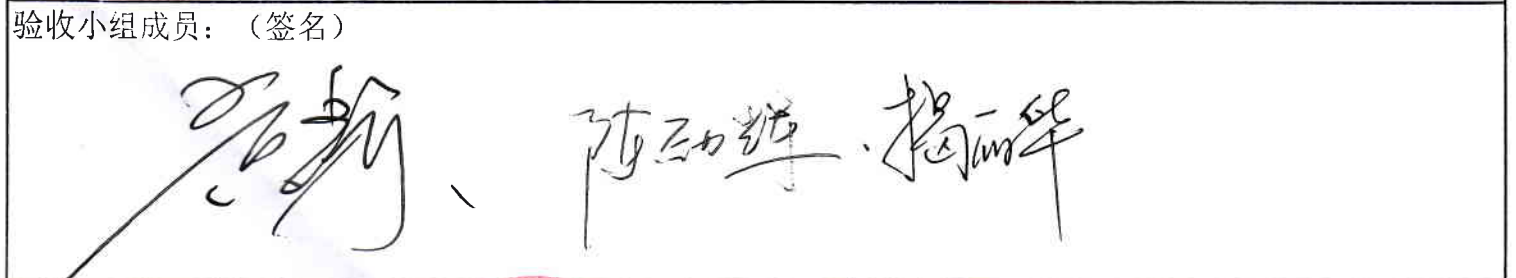 验收小组成员：（签名）
、陈劲辉、揭丽华